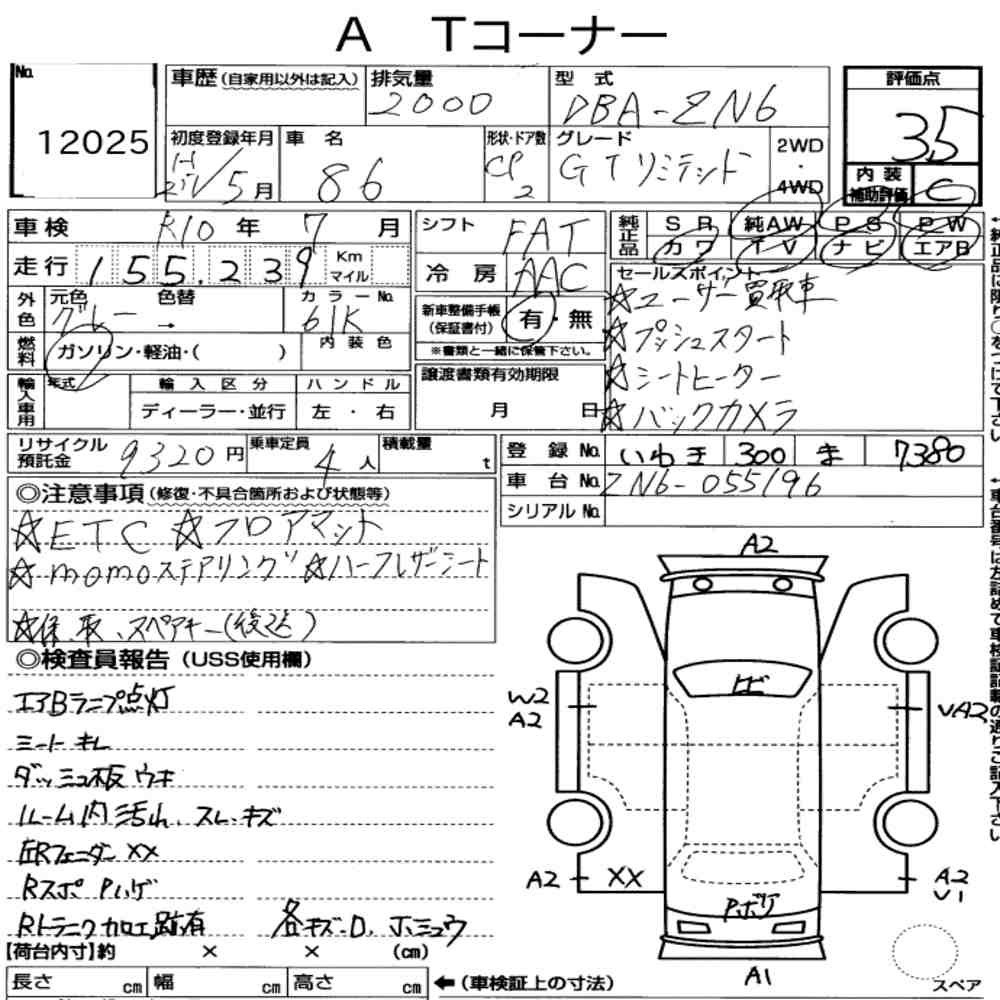 A Tコーナー
No. 12025
車歴（自家用以外は記入） 排気量 2000 型式 DBA-ZN6
初度登録年月 H25/5月 車名 86 形状・ドア数 CP 2 グレード GTリミテッド 2WD・4WD
評価点 3.5
内装補助評価 C
車検 R10年 7月
走行 155,239 Km マイル
シフト FAT
冷房 AAC
純正品 SR 純AW PS PW
カワ TV ナビ エアB
外色 元色 グレー → 色替 カラーNo. 61K
燃料 ガソリン・軽油・（ ） 内装色
新車整備手帳（保証書付） 有・無
※書類と一緒に保管下さい。
セールスポイント
☆ユーザー買取車
☆プッシュスタート
☆シートヒーター
☆バックカメラ
輸入車用 年式 輸入区分 ハンドル
ディーラー・並行 左・右
譲渡書類有効期限
月 日
リサイクル預託金 9320円 乗車定員 4人 積載量 t
登録No. いわき 300 ま 7380
車台No. ZN6-055196
シリアルNo.
◎注意事項（修復・不具合箇所および状態等）
☆ETC ☆フロアマット
☆momoステアリング ☆ハーフレザーシート
☆保、取、スペアキー(後送)
◎検査員報告（USS使用欄）
エアBランプ点灯
シート キレ
ダッシュ板 ウキ
ルーム内 汚れ、スレ、キズ
左Rフェンダー XX
Rスポ Pハゲ
Rトランク カロエ跡有 各キズ・D、ホシュウ
A2
W2
A2
トビ
VA2
A2
XX
Pボケ
A2
V1
A1
スペア
【荷台内寸】約 × × (cm)
長さ cm 幅 cm 高さ cm ←（車検証上の寸法）
←純正品に限り○をつけて下さい
←車台番号は左詰めで車検証記載の通りご記入下さい